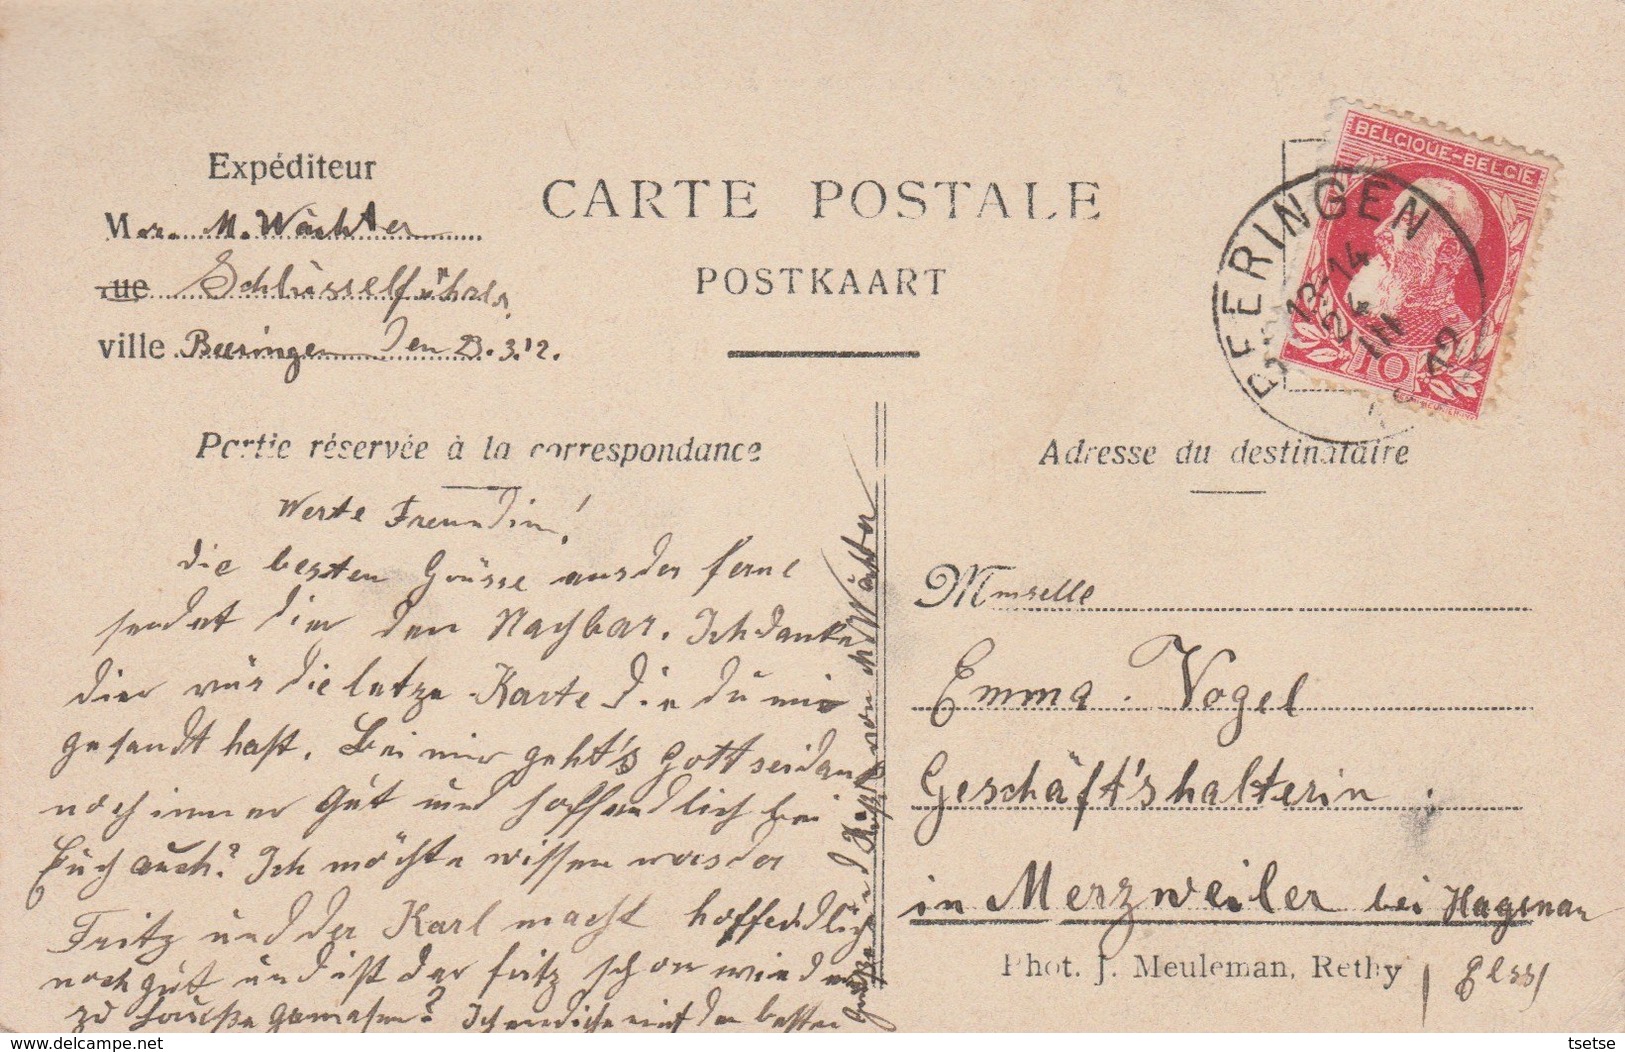 Expéditeur
Mr. M. Wächter
rue Schlüsselführer,
ville Beeringen den 23.3.12.
CARTE POSTALE
POSTKAART
BELGIQUE-BELGIE
10
BEERINGEN
13-14
24
III
12
Partie réservée à la correspondance
Werte Freundin!
die besten Grüsse aus der ferne
sendet dier den Nachbar. Ich danke
dier vür die letze Karte die du mir
gesandt hast. Bei mir geht's Gott seidank
noch immer Gut und hoffendlich bei
Euch auch? Ich möchte wissen was der
Fritz und der Karl macht hoffendlich
noch gut und ist der fritz schon wieder
zu Hause
Ich
besten
Grüße und Küße von M Wächter
Adresse du destinataire
Mmselle
Emma. Vogel
Geschäft'shalterin
in Merzweiler bei Hagenau
Phot. J. Meuleman, Rethy
Elss
delcampe.net
tsetse